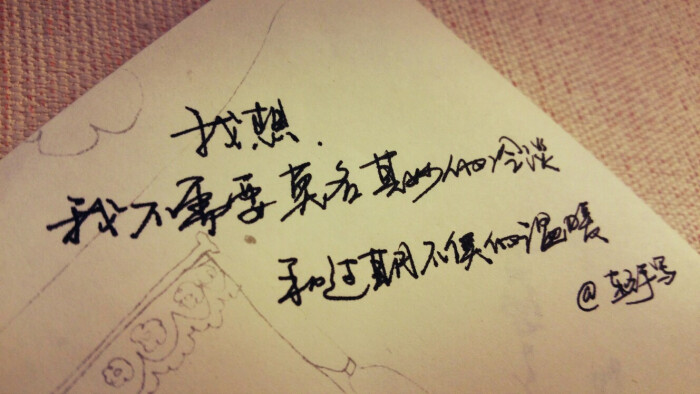 我想.
我不需要莫名其妙的冷淡
和过期不候的温暖
@ 手写